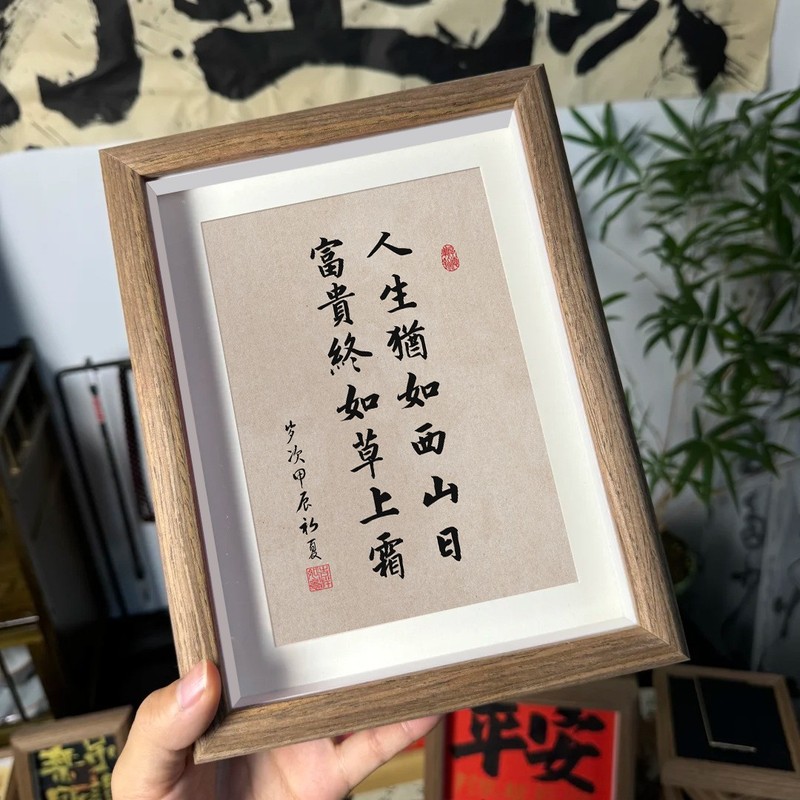 人生猶如西山日
富貴終如草上霜
岁次甲辰初夏
平安